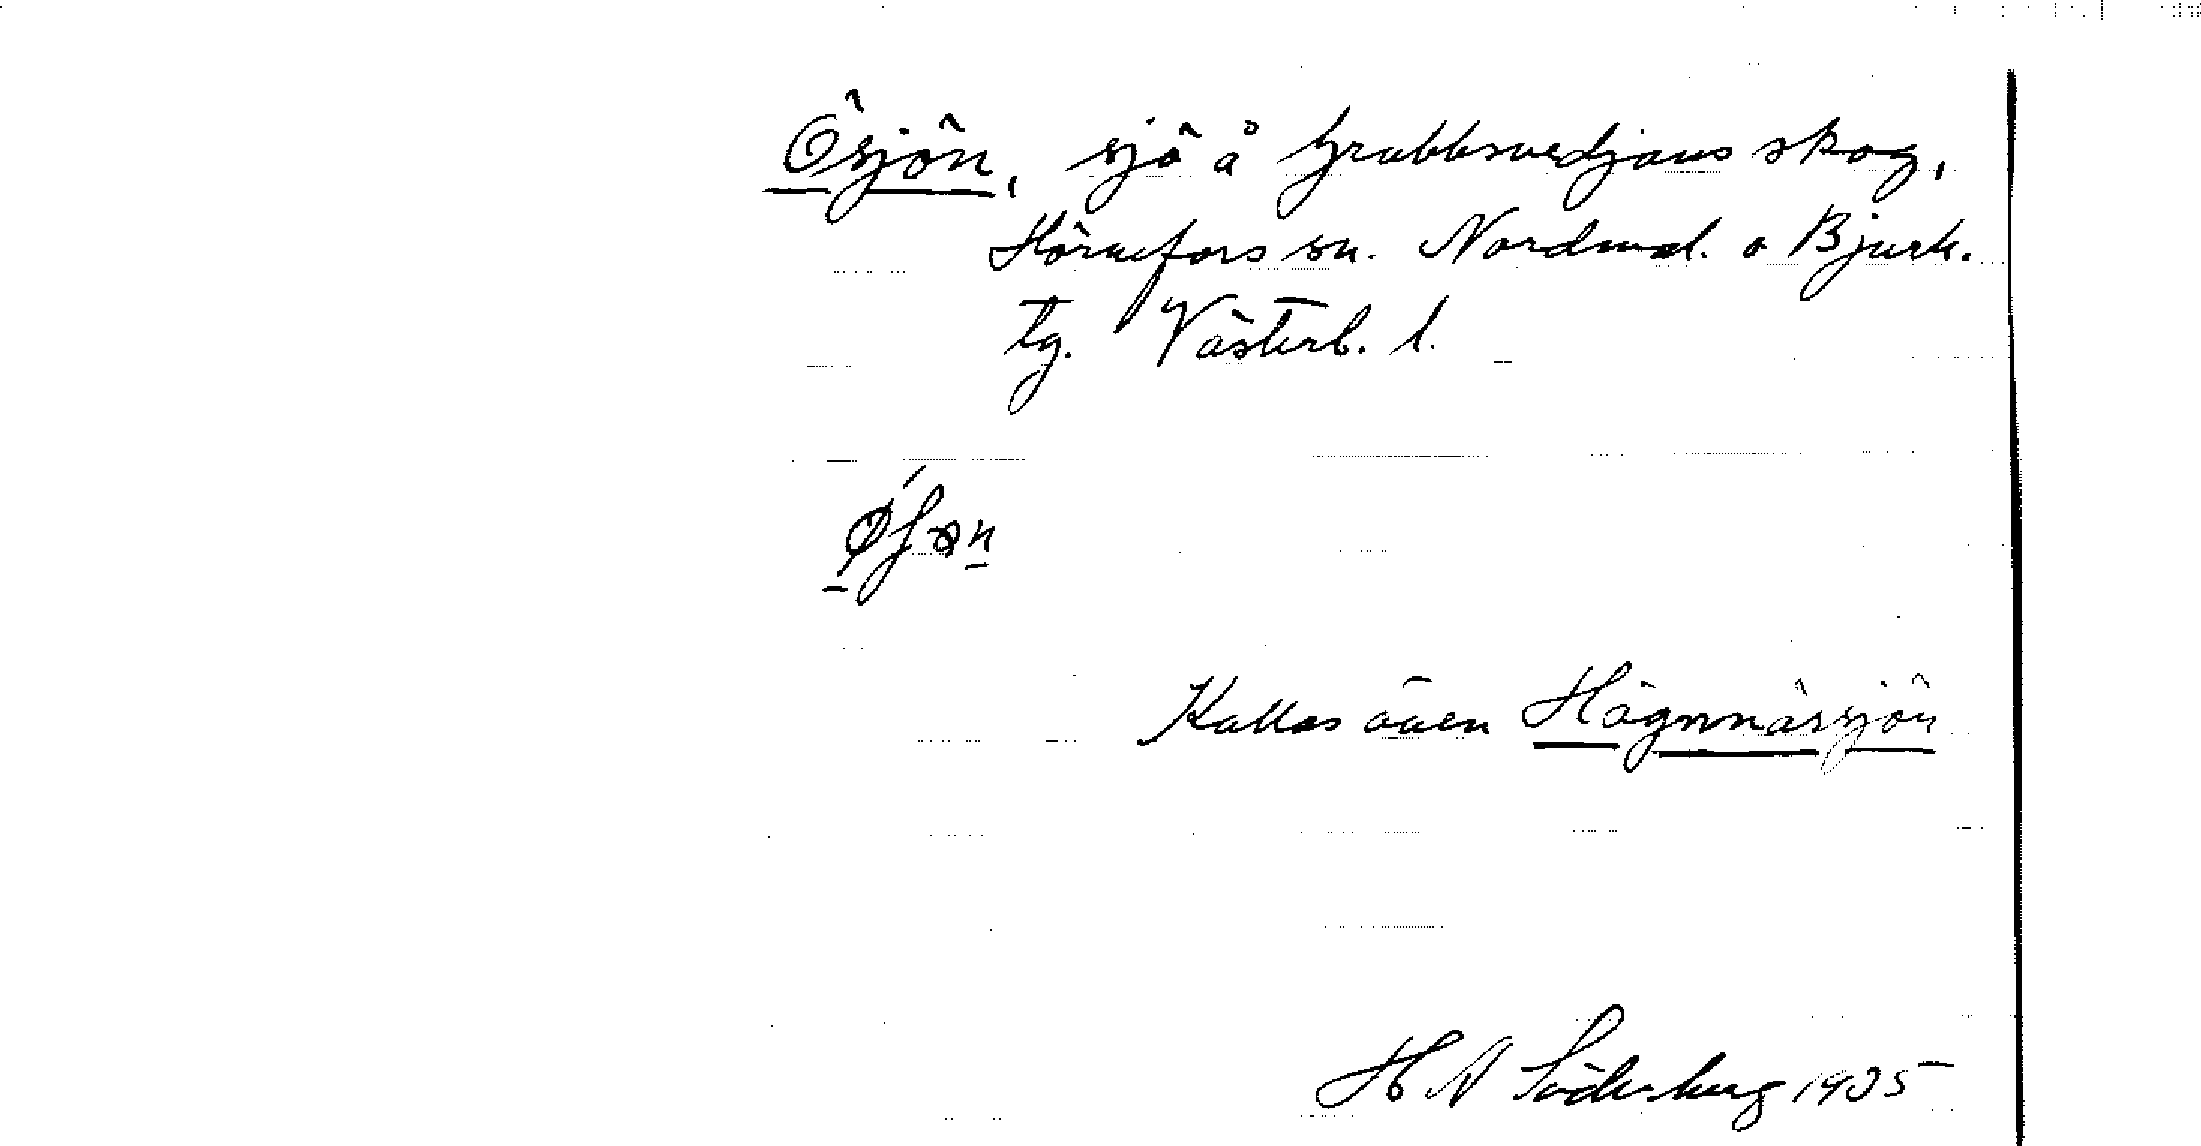 Ösjön, sjö å Grubbsvedjans skog,
Hörnefors sn. Nordmal. o Bjurh.
tg. Västerb. l.
Kallas även Högnnässjön
H N Söderberg 1935